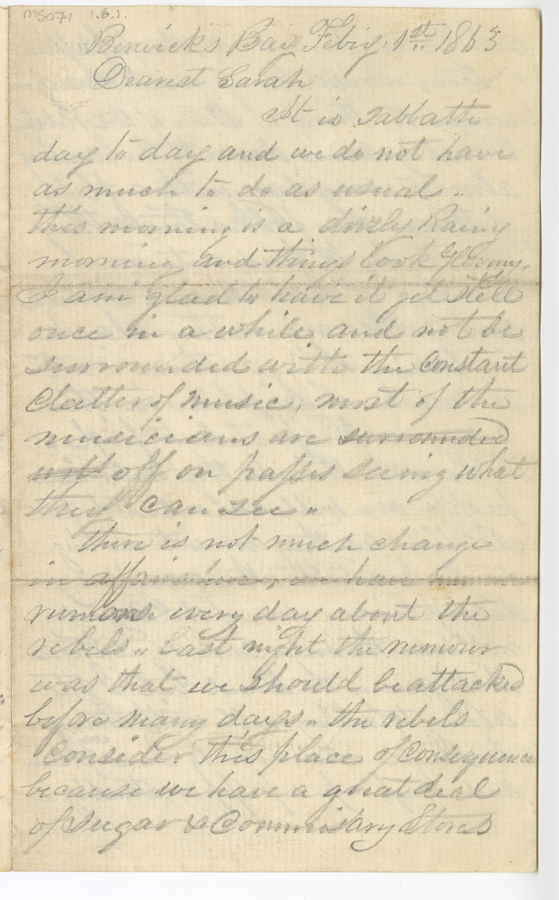 MS071 1.6.1.
Berwicks Bay Feby, 1st 1863
Dearest Sarah
It is Sabbath
day to day and we do not have
as much to do as usual ..
this morning is a dizly Rainy
morning and things look gloomy.
I am glad to have it get still
once in a while and not be
surrounded with the constant
Clatter of music, most of the
musicians are surrounded
with off on passes seeing what
they can see "
There is not much change
in affairs here, we have
rumors every day about the
rebels " Last night the rumour
was that we should be attacked
before many days " the rebels
consider this place of consequence
because we have a great deal
of sugar & Commisary Stores